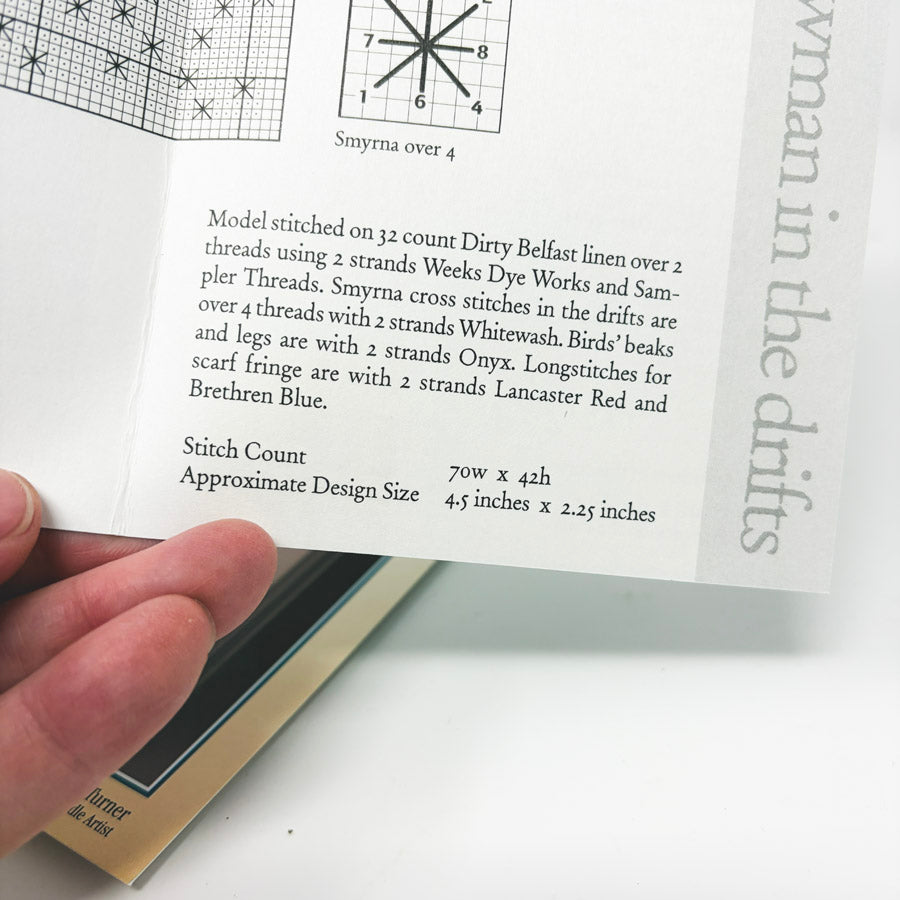 2
7
8
1
6
4
Smyrna over 4
Model stitched on 32 count Dirty Belfast linen over 2
threads using 2 strands Weeks Dye Works and Sam-
pler Threads. Smyrna cross stitches in the drifts are
over 4 threads with 2 strands Whitewash. Birds' beaks
and legs are with 2 strands Onyx. Longstitches for
scarf fringe are with 2 strands Lancaster Red and
Brethren Blue.
Stitch Count 70w x 42h
Approximate Design Size 4.5 inches x 2.25 inches
wman in the drifts
Turner
dle Artist